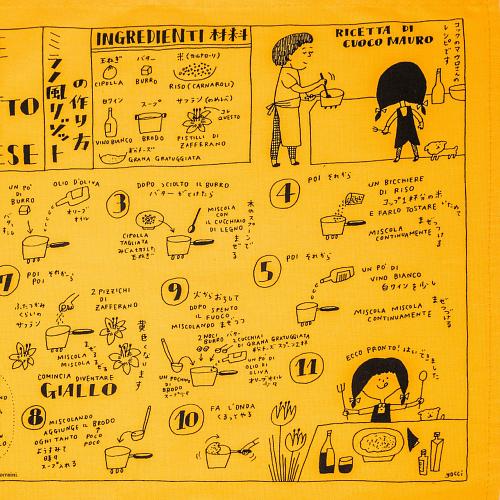 TO
ESE
ラノ風リゾット
の作り方
INGREDIENTI 材料
玉ねぎ
CIPOLLA
バター
BURRO
米(カルナローリ)
RISO (CARNAROLI)
白ワイン
VINO BIANCO
スープ
BRODO
サフラン(のめしべ)
コレ
GUESTO
PISTILLI DI
ZAFFERANO
粉チーズ
GRANA GRATUGGIATA
RICETTA DI
CUOCO MAURO
コックのマウロさんの
レシピです
UN PO'
DI
BURRO
バター
OLIO D'OLIVA
オリーブ
オイル
3
DOPO SCIOLTO IL BURRO
バターがとけたら
CIPOLLA
TAGLIATA
みじん切りした
玉ねぎ
MISCOLA
CON
IL CUCCHIAIO
DI LEGNO
木のスプーンで
まぜる
4
POI それから
UN BICCHIERE
DI RISO
コップ1杯分の米
E FARLO TOSTARE
いためて
MISCOLA
CONTINUAMENTE
まぜつづける
7
POI それから
POI
ふたつかみ
くらいの
サフラン
2 PIZZICHI
DI
ZAFFERANO
MISCOLA まぜ
MISCOLA まぜる
COMINCIA DIVENTARE
GIALLO
黄色くなります
9
火からおろして
DOPO
SPENTO
IL FUOCO,
MISCOLANDO まぜつつ
2 NOCI
BURRO
2 CUCCHIAI
DI GRANA GRATUGGIATA
粉チーズ スプーン2杯
UN PO DI
OLIO DI
OLIVA
オリーブオイル
少し
UN POCHINO
DI
BRODO
スープ少し
5
POI それから
UN PO' DI
VINO BIANCO
白ワインを少し
MISCOLA MISCOLA
CONTINUAMENTE
まぜつづける
11
ECCO PRONTO! はいできました
8
MISCOLANDO
AGGIUNGE IL BRODO
OGNI TANTO POCO
POCO
ようすみて
時々
スープ入れる
10
FA L'ONDA
くるってやる